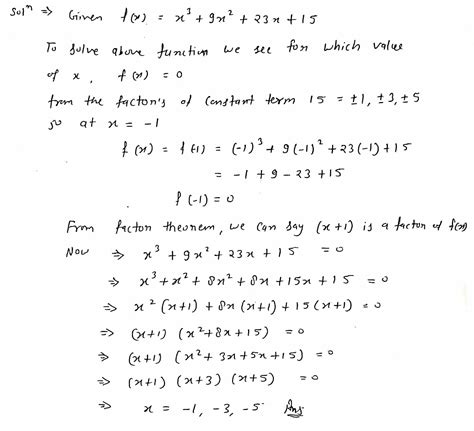 Solⁿ ⇒ Given f(x) = x³ + 9x² + 23x + 15
To solve above function we see for which value
of x, f(x) = 0
from the factor's of constant term 15 = ±1, ±3, ±5
so at x = -1
f(x) = f(-1) = (-1)³ + 9(-1)² + 23(-1) + 15
= -1 + 9 - 23 + 15
f(-1) = 0
From factor theorem, we can say (x+1) is a factor of f(x)
Now ⇒ x³ + 9x² + 23x + 15 = 0
⇒ x³ + x² + 8x² + 8x + 15x + 15 = 0
⇒ x²(x+1) + 8x(x+1) + 15(x+1) = 0
⇒ (x+1) (x²+8x+15) = 0
⇒ (x+1) (x² + 3x + 5x + 15) = 0
⇒ (x+1) (x+3) (x+5) = 0
⇒ x = -1, -3, -5 Ans